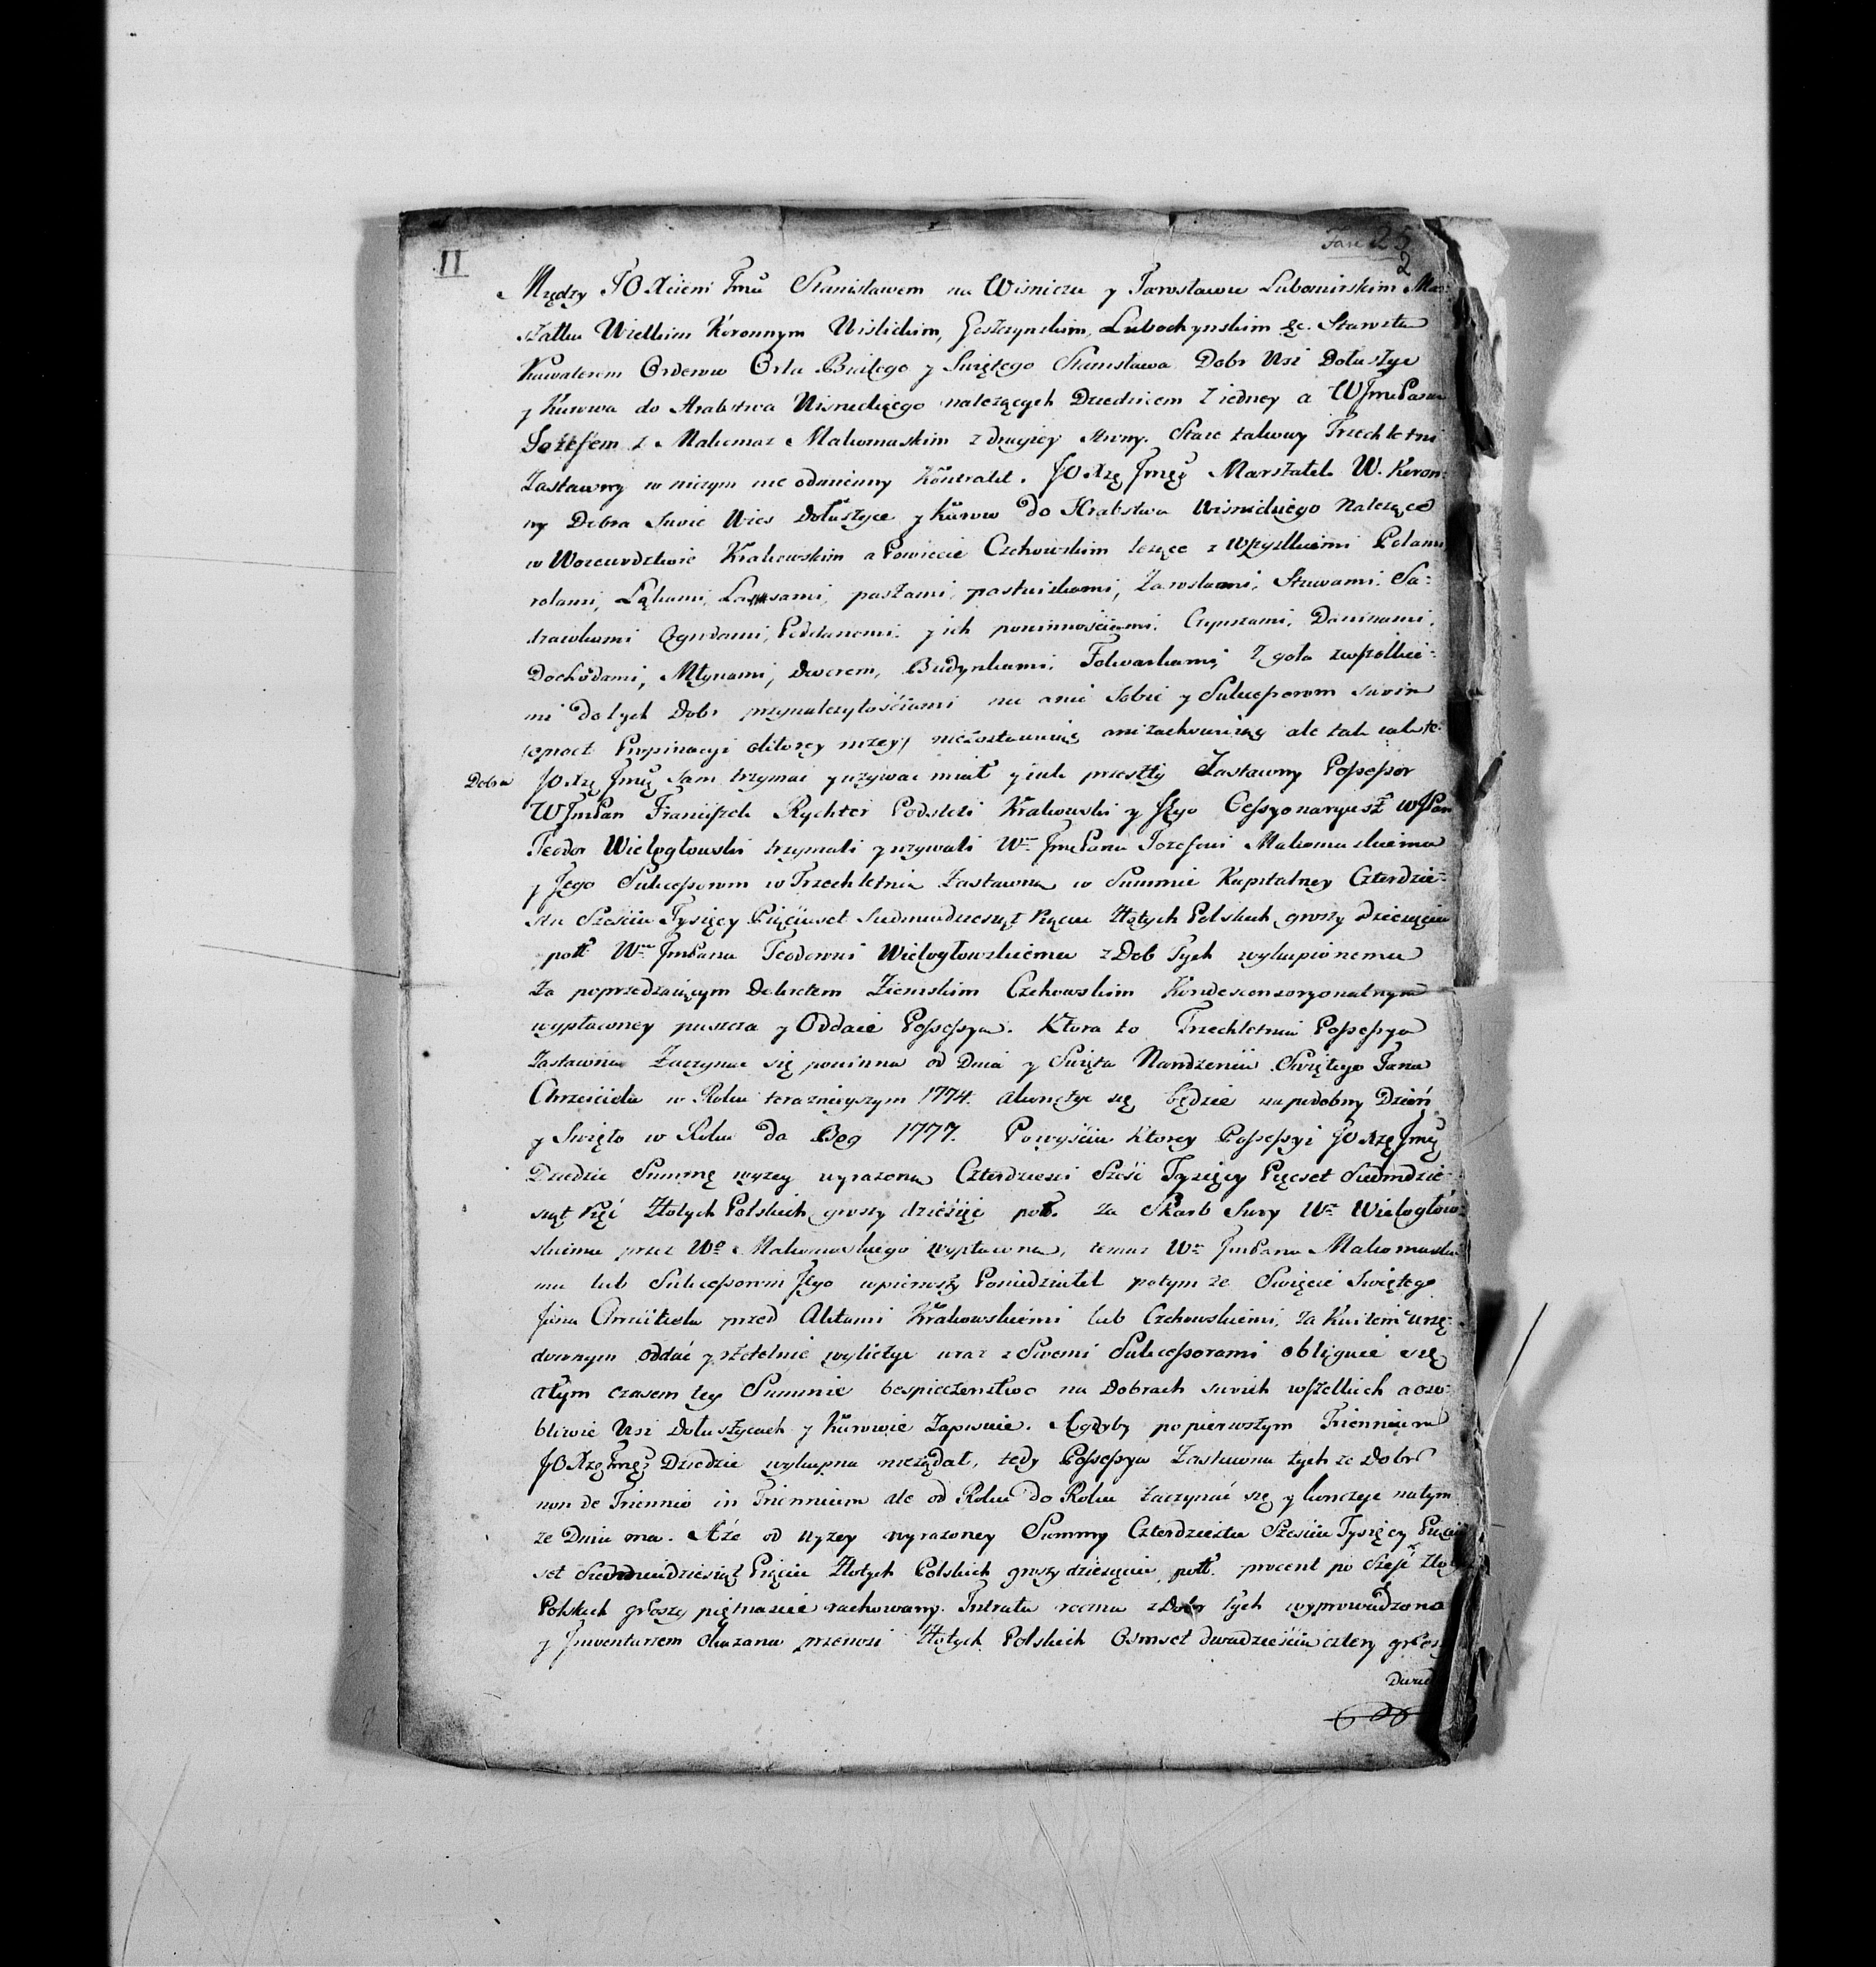 II
Fasc 25
2
Między JO Xciem Jmć Stanisławem na Wisniczu y Jarosławiu Lubomirskim Mar:
szałku Wielkim Koronnym Wislickim, Lubochynskim &c. Starostu
Kawalerem Orderow Orła Białego y Swiętego Stanisława Dobr Wsi Dołuszyc
y Kurowa do Hrabstwa Wisnickiego nalezących Dziedzicem z iedney a WJmć Panem
Jozefem z Makomaz Makomaskim z drugiey strony. Staie takowy Trzechletni
Zastawny w niczym nie odmienny Kontrakt. JO Xzę Jmć Marszałek W. Koron:
ny Dobra Swoie Wies Dołuszyce y Kurow do Hrabstwa Wisnickiego Nalezące
w Woiewodztwie Krakowskim a Powiecie Czchowskim lezące z Wszystkiemi Polami
rolami, Łąkami, Lassami, paszami, pastwiskami, Zaroslami, Stawami, Sa:
dzawkami Ogrodami, Poddanemi, y ich powinnościami, Czynszami, Daninami,
Dochodami, Młynami, dworem, Budynkami, Folwarkami, Zgoła zwszelkie:
mi do tych Dobr przynalezytościami nic a nic Sobie y Sukcessorom swoim
(eprocz Propinacyi o ktorey nizey) niezostawuiąc ani zachowuiąc ale tak iak te:
Dobra JO Xzę Jmć Sam trzymać y uzywac miał y iak przeszły Zastawny Possessor
WJmć Pan Franciszek Rychter Podstoli Krakowski y Jego Cessyonaryusz WJPan
Teodor Wielogłowski trzymali y uzywali Wmu Jmć Panu Jozefowi Makomaskiemu
y Jego Sukcessorom w Trzechletnią Zastawną w Summie Kapitalney Czterdzie:
stu Sześciu Tysięcy Pięciuset Siedmiudziesiąt Pięciu Złotych Polskich groszy dziesięciu
poł Wmu Jmć Panu Teodorowi Wielogłowskiemu z Dob Tych wykupionemu
za poprzedzaiącym Dekretem Ziemskim Czchowskim Kondescensoryonalnym
wypłaconey puszcza y Oddaie Possessyą. Ktora to Trzechletnia Possessya
Zastawna Zaczynac się powinna od Dnia y Swięta Narodzenia Swiętego Jana
Chrzciciela w Roku teraznieyszym 1774. a konczyc się będzie na podobny Dzień
y Swięto w Roku da Bog 1777. Po wyściu ktorey Possessyi JO Xzę Jmć
Dziedzic Summę wyzey wyrazoną Czterdziesci Sześć Tysięcy Pięcset Siedmdzie:
siąt Pięć Złotych Polskich groszy dziesięć poł. za Skarb Swoy Wmu Wielogłow:
skiemu przez Wgo Makomaskiego wypłaconą, temuz Wmu Jmć Panu Makomaskie
mu lub Sukcessorom Jego w pierwszy Poniedziałek po tym ze Swięcie Swiętego
Jana Chrzciciela przed Aktami Krakowskiemi lub Czchowskiemi, za Kwitem urzę:
downym oddać y rzetelnie wyliczyc wraz z Swemi Sukcessorami obliguie się
a tym czasem tey Summie bespieczenstwo na Dobrach swoich wszelkich a oso:
bliwie Wsi Dołuszycach y Kurowie Zapisuie. A gdyby po pierwszym Triennium
JO Xzę Jmć Dziedzic wykupna nieządał, tedy Possessya Zastawna tych ze Dobr
non de Triennio in Triennium ale od Roku do Roku zaczynać się y konczyc na tym
ze Dniu ma. A ze od wyzey wyrazoney Summy Czterdziestu Sześciu Tysięcy Pięciu
set Siedmiudziesiąt Pięciu Złotych Polskich groszy dziesięciu poł. procent po Sześć Zło
Polskich groszy piętnascie rachowany. Intrata roczna z Dobr tych wyprowadzona
y Inwentarzem okazana przenosi Złotych Polskich Osmset dwadzieścia cztery grosz
Dwad